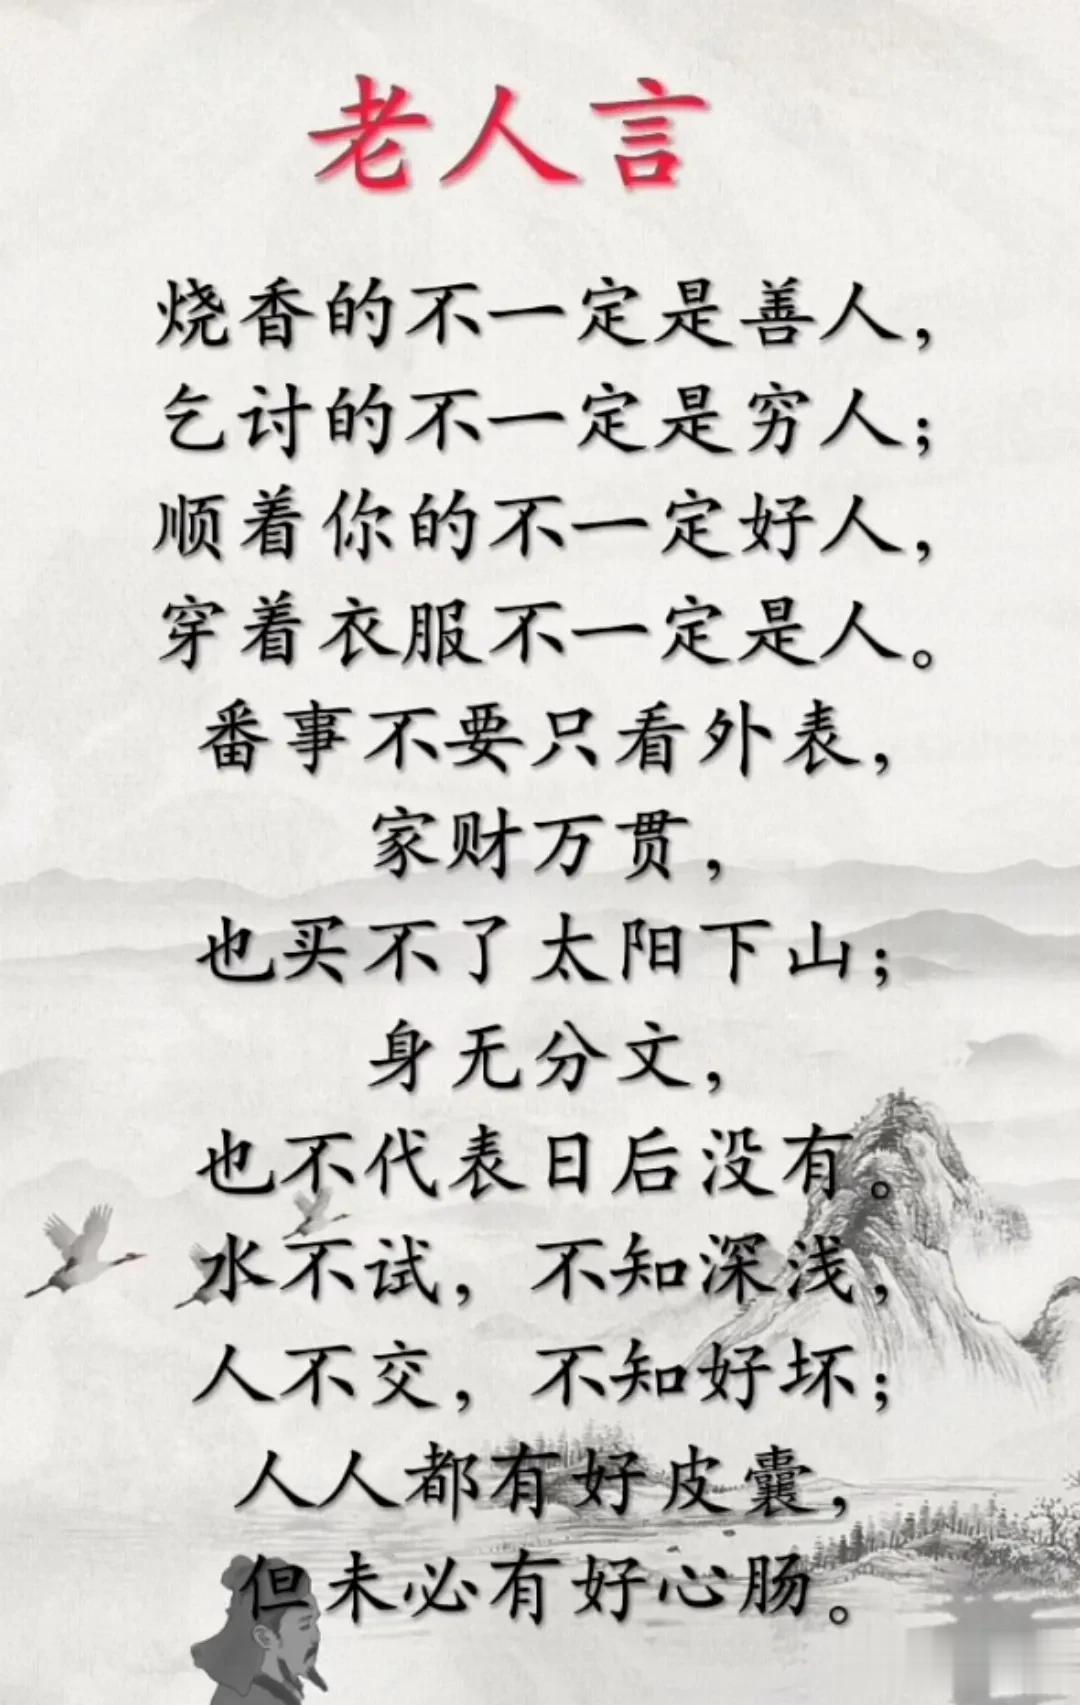 老人言
烧香的不一定是善人，
乞讨的不一定是穷人；
顺着你的不一定好人，
穿着衣服不一定是人。
番事不要只看外表，
家财万贯，
也买不了太阳下山；
身无分文，
也不代表日后没有。
水不试，不知深浅，
人不交，不知好坏；
人人都有好皮囊，
但未必有好心肠。